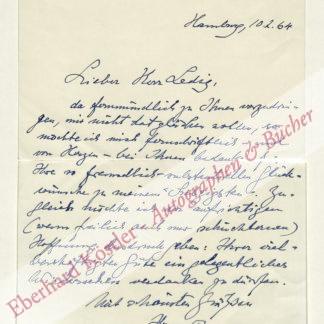 Hamburg, 10.2.64
Lieber Herr Ledig,
da fernmündlich zu Ihnen vorzudrin-
gen, mir nicht hat glücken sollen, so
möchte ich mich fernschriftlich – und
von Herzen – bei Ihnen bedanken für
Ihre so freundlich Glück-
wünsche zu meinem Zu-
gleich möchte ich der aufrichtigen
(wenn freilich auch nur schüchternen)
Hoffnung Ausdruck geben: Ihrer viel-
Güte ein gelegentliches
verdanken zu dürfen.
Mit schönsten Grüßen
Eberhard Köstler Autographen & Bücher